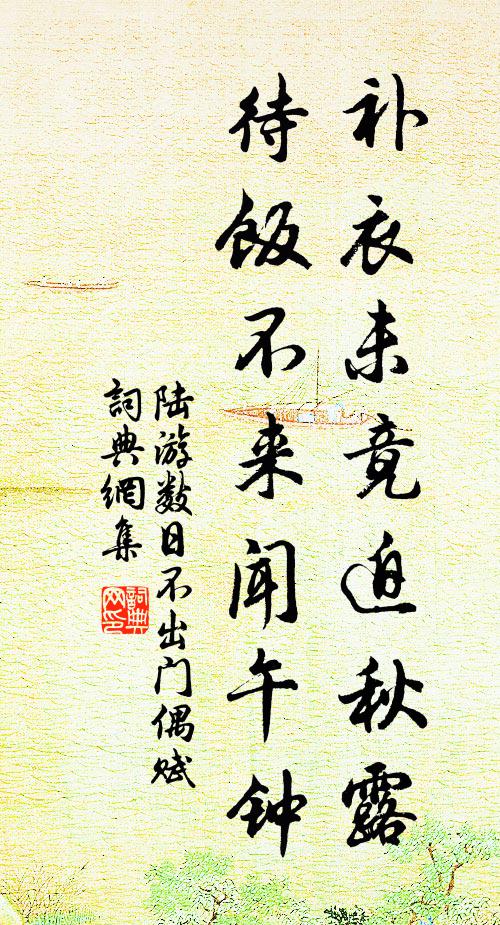 补衣未竟迫秋露
待饭不来闻午钟
陆游数日不出门偶赋
詞典網集
詞典
网印